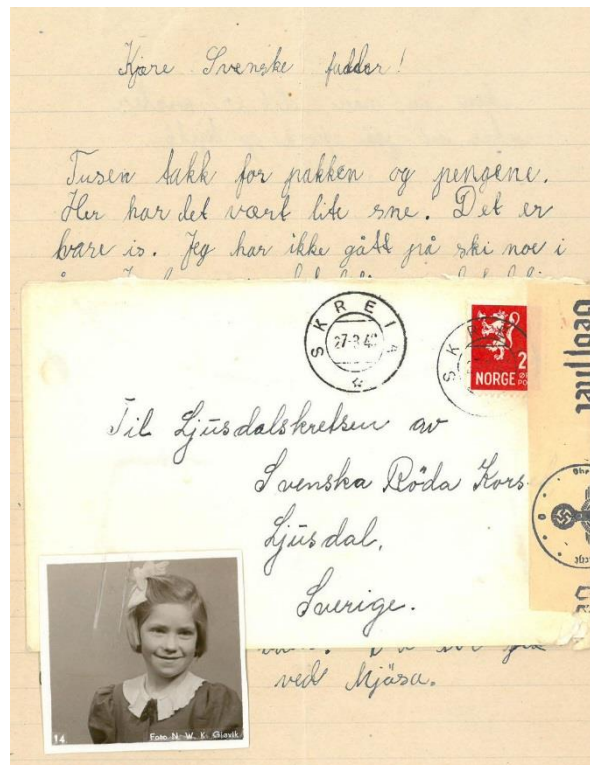 Kjære Svenske fadder!
Tusen takk for pakken og pengene.
Her har det vært lite sne. Det er
bare is. Jeg har ikke gått på ski noe i
SKREIA
27-3.4
SK
2
NORGE
Geöffnet
Til Ljusdalskretsen av
Svenska Röda Kors
Ljusdal,
Sverige.
ved Mjösa.
14 Foto N. W. K. Gjøvik